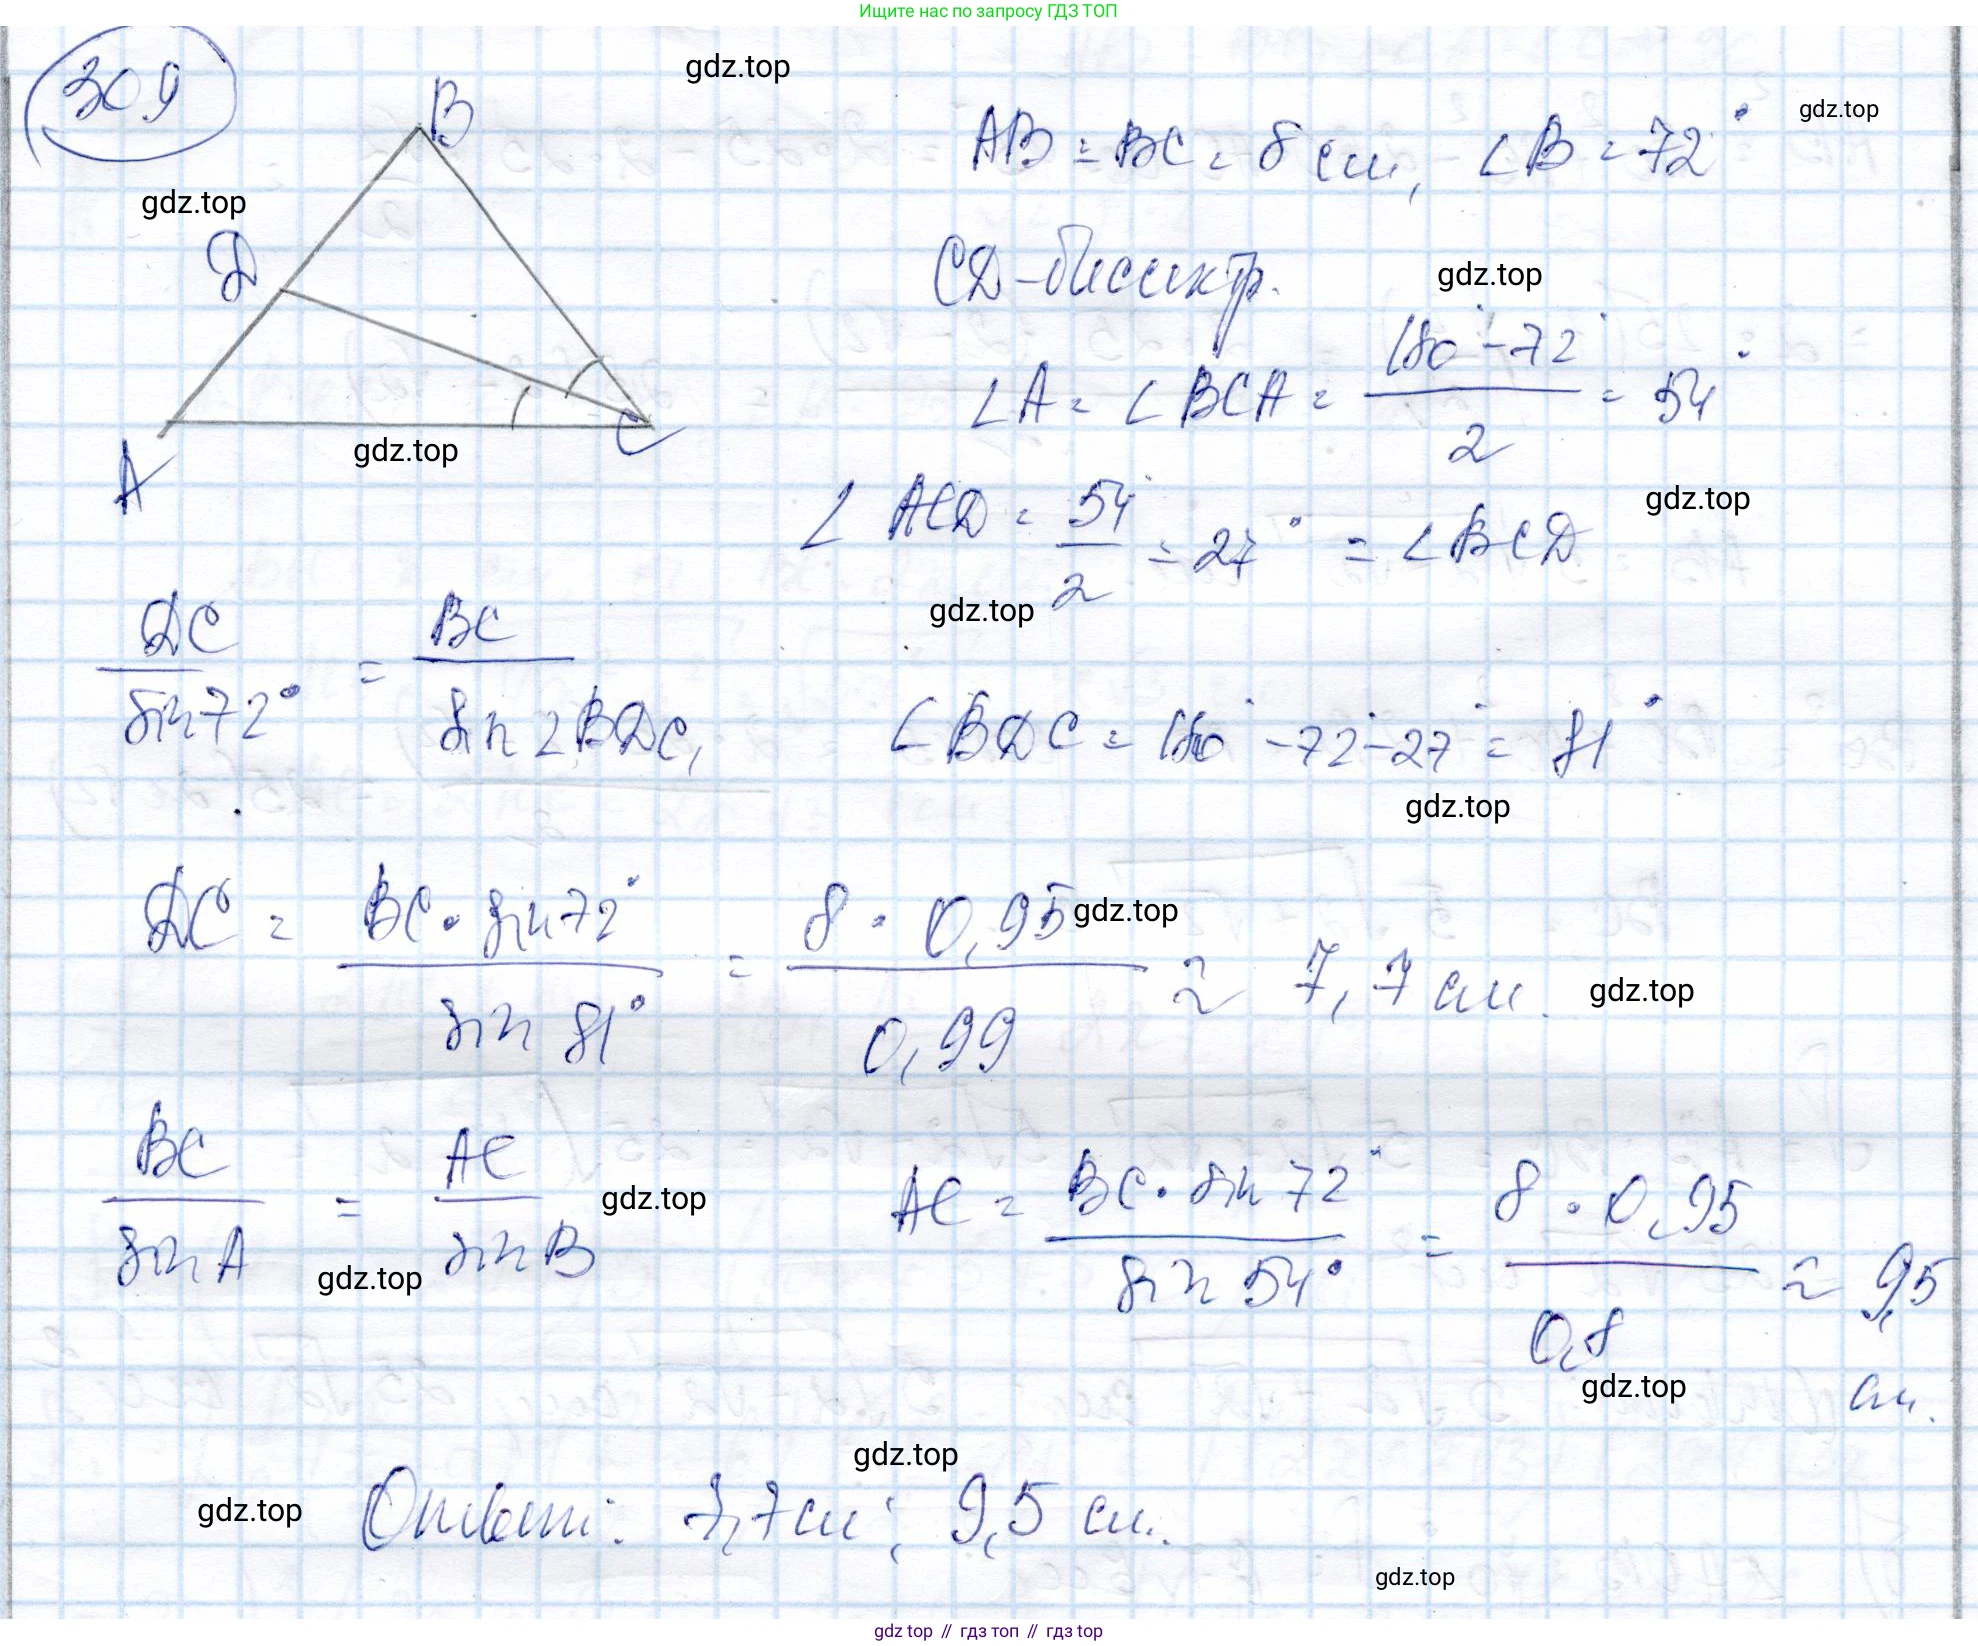 Ищите нас по запросу ГДЗ ТОП
309
gdz.top
B
AB = BC = 8 см, ∠B = 72°
gdz.top
gdz.top
D
CD - биссектр.
gdz.top
∠A = ∠BCA = (180° - 72°) / 2 = 54°
A
C
gdz.top
∠ACD = 54° / 2 = 27° = ∠BCD
gdz.top
gdz.top
DC / sin 72° = BC / sin ∠BDC,
∠BDC = 180° - 72° - 27° = 81°
gdz.top
DC = BC · sin 72° / sin 81° = 8 · 0,95 / 0,99 ≈ 7,7 см.
gdz.top
gdz.top
BC / sin A = AC / sin B
gdz.top
gdz.top
AC = BC · sin 72° / sin 54° = 8 · 0,95 / 0,8 ≈ 9,5 см.
gdz.top
gdz.top
gdz.top
Ответ: 7,7 см; 9,5 см.
gdz.top
gdz top // гдз топ // гдз top